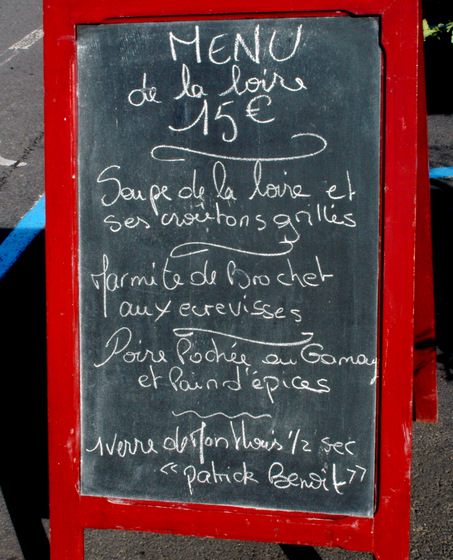 MENU
de la loire
15€
Soupe de la loire et
ses croûtons grillés
Marmite de Brochet
aux ecrevisses
Poire Pochée au Gamay
et Pain d'épices
1 verre de Monthouis 1/2 sec
"patrick Benoit"